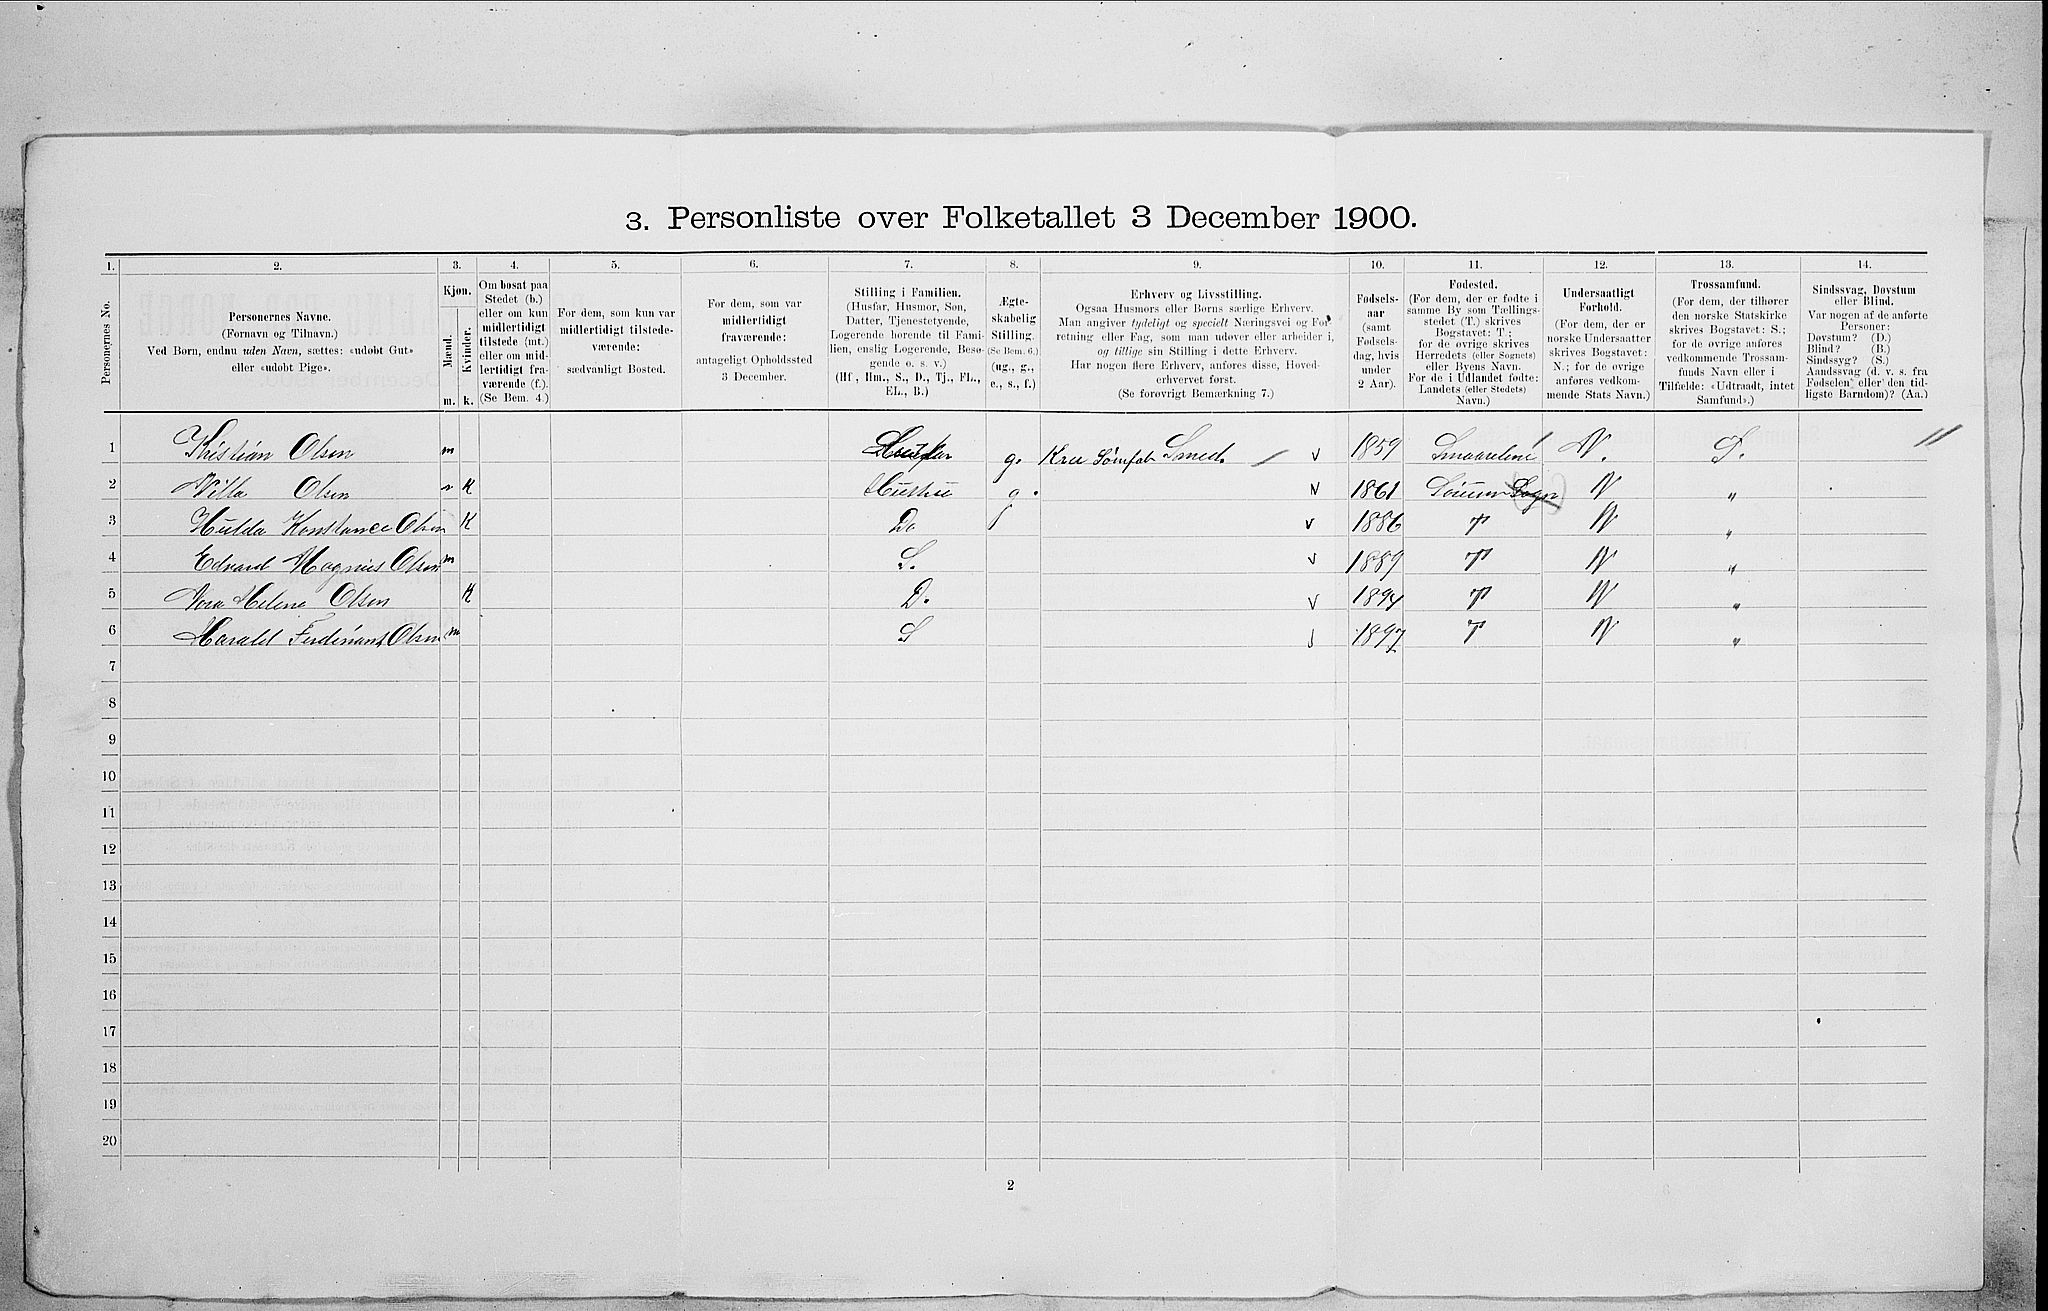 3. Personliste over Folketallet 3 December 1900.
1. 2. 3. 4. 5. 6. 7. 8. 9. 10. 11. 12. 13. 14.
Personernes No.
Personernes Navne.
(Fornavn og Tilnavn.)
Ved Børn, endnu uden Navn, sættes: «udøbt Gut»
eller «udøbt Pige».
Kjøn.
Mænd.
Kvinder.
m. k.
Om bosat paa
Stedet (b.)
eller om kun
midlertidigt
tilstede (mt.)
eller om mid-
lertidigt fra-
værende (f.).
(Se Bem. 4.)
For dem, som kun var
midlertidigt tilstede-
værende:
sædvanligt Bosted.
For dem, som var
midlertidigt
fraværende:
antageligt Opholdssted
3 December.
Stilling i Familien.
(Husfar, Husmor, Søn,
Datter, Tjenestetyende,
Logerende hørende til Fami-
lien, enslig Logerende, Besø-
gende o. s. v.)
(Hf., Hm., S., D., Tj., FL.,
EL., B.)
Ægte-
skabelig
Stilling.
(Se Bem. 6.)
(ug., g.,
e., s., f.)
Erhverv og Livsstilling.
Ogsaa Husmors eller Børns særlige Erhverv.
Man angiver tydeligt og specielt Næringsvei og For-
retning eller Fag, som man udøver eller arbeider i,
og tillige sin Stilling i dette Erhverv.
Har nogen flere Erhverv, anføres disse, Hoved-
erhvervet først.
(Se forøvrigt Bemærkning 7.)
Fødsels-
aar
(samt
Fødsels-
dag, hvis
under
2 Aar).
Fødested.
(For dem, der er fødte i
samme By som Tællings-
stedet (T.) skrives
Bogstavet: T;
for de øvrige skrives
Herredets (eller Sognets)
eller Byens Navn.
For de i Udlandet fødte:
Landets (eller Stedets)
Navn.)
Undersaatligt
Forhold.
(For dem, der er
norske Undersaatter
skrives Bogstavet:
N.; for de øvrige
anføres vedkom-
mende Stats Navn.)
Trossamfund.
(For dem, der tilhører
den norske Statskirke
skrives Bogstavet: S.;
for de øvrige anføres
vedkommende Trossam-
funds Navn eller i
Tilfælde: «Udtraadt, intet
Samfund».)
Sindssvag, Døvstum
eller Blind.
Var nogen af de anførte
Personer:
Døvstum? (D.)
Blind? (B.)
Sindssyg? (S.)
Aandssvag (d. v. s. fra
Fødselen eller den tid-
ligste Barndom)? (Aa.)
1 Kristian Olsen m Husfar g. Kra Sømfab Smed 1859 Smaalene N. S.
2 Olsen K g. 1861 N "
3 Hulda Konstance Olsen K D 1886 T N "
4 Edvard Magnus Olsen m S. 1889 T N "
5 Nora Helene Olsen K D. 1894 T N "
6 Harald Ferdinand Olsen m S 1897 T N "
7
8
9
10
11
12
13
14
15
16
17
18
19
20
2